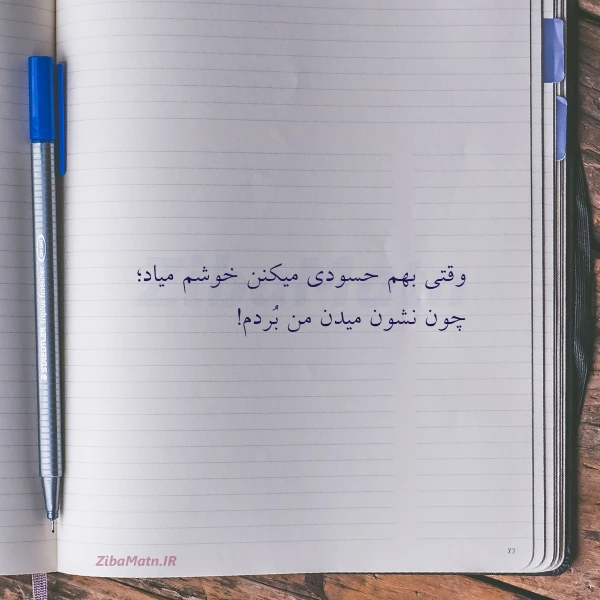 وقتی بهم حسودی میکنن خوشم میاد؛
چون نشون میدن من بُردم!
ZibaMatn.IR